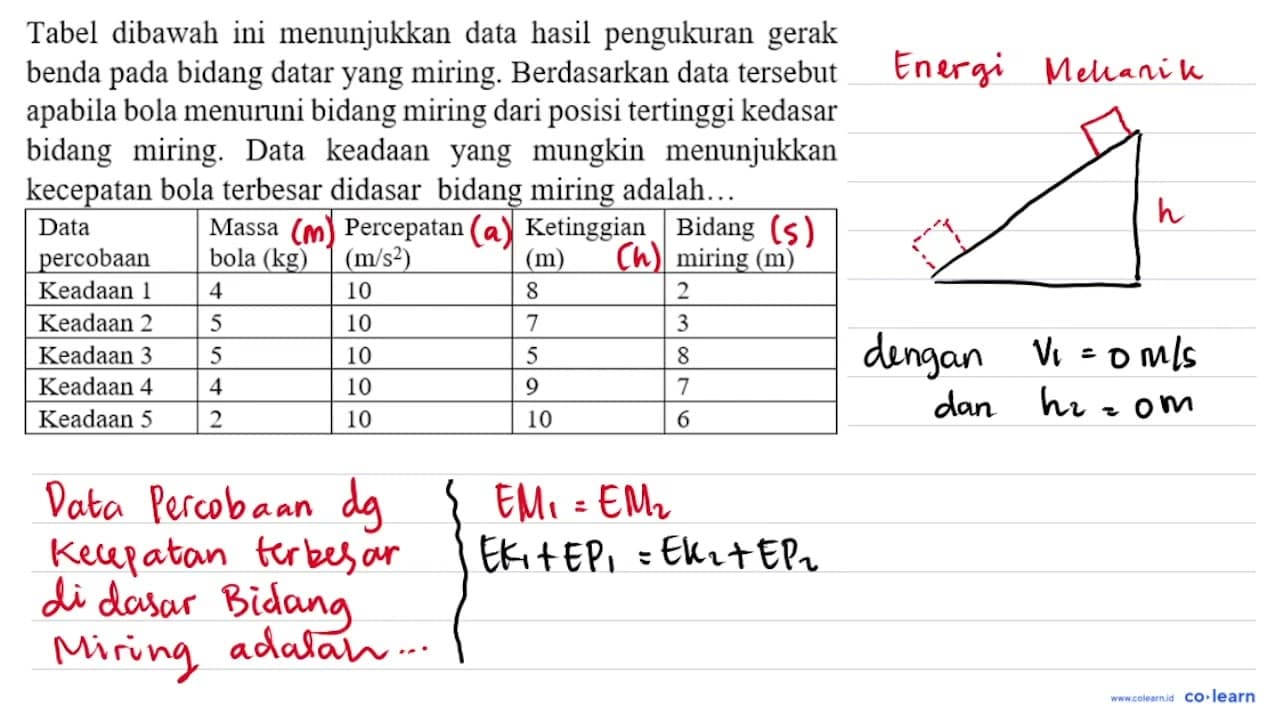 Tabel dibawah ini menunjukkan data hasil pengukuran gerak
benda pada bidang datar yang miring. Berdasarkan data tersebut
apabila bola menuruni bidang miring dari posisi tertinggi kedasar
bidang miring. Data keadaan yang mungkin menunjukkan
kecepatan bola terbesar didasar bidang miring adalah…
Data percobaan | Massa bola (kg) (m) | Percepatan (m/s²) (a) | Ketinggian (m) (h) | Bidang miring (m) (s)
Keadaan 1 | 4 | 10 | 8 | 2
Keadaan 2 | 5 | 10 | 7 | 3
Keadaan 3 | 5 | 10 | 5 | 8
Keadaan 4 | 4 | 10 | 9 | 7
Keadaan 5 | 2 | 10 | 10 | 6
Energi Mekanik
h
dengan V₁ = 0 m/s
dan h₂ = 0 m
Data Percobaan dg
Kecepatan terbesar
di dasar Bidang
Miring adalah ...
EM₁ = EM₂
EK₁ + EP₁ = EK₂ + EP₂
www.colearn.id co·learn